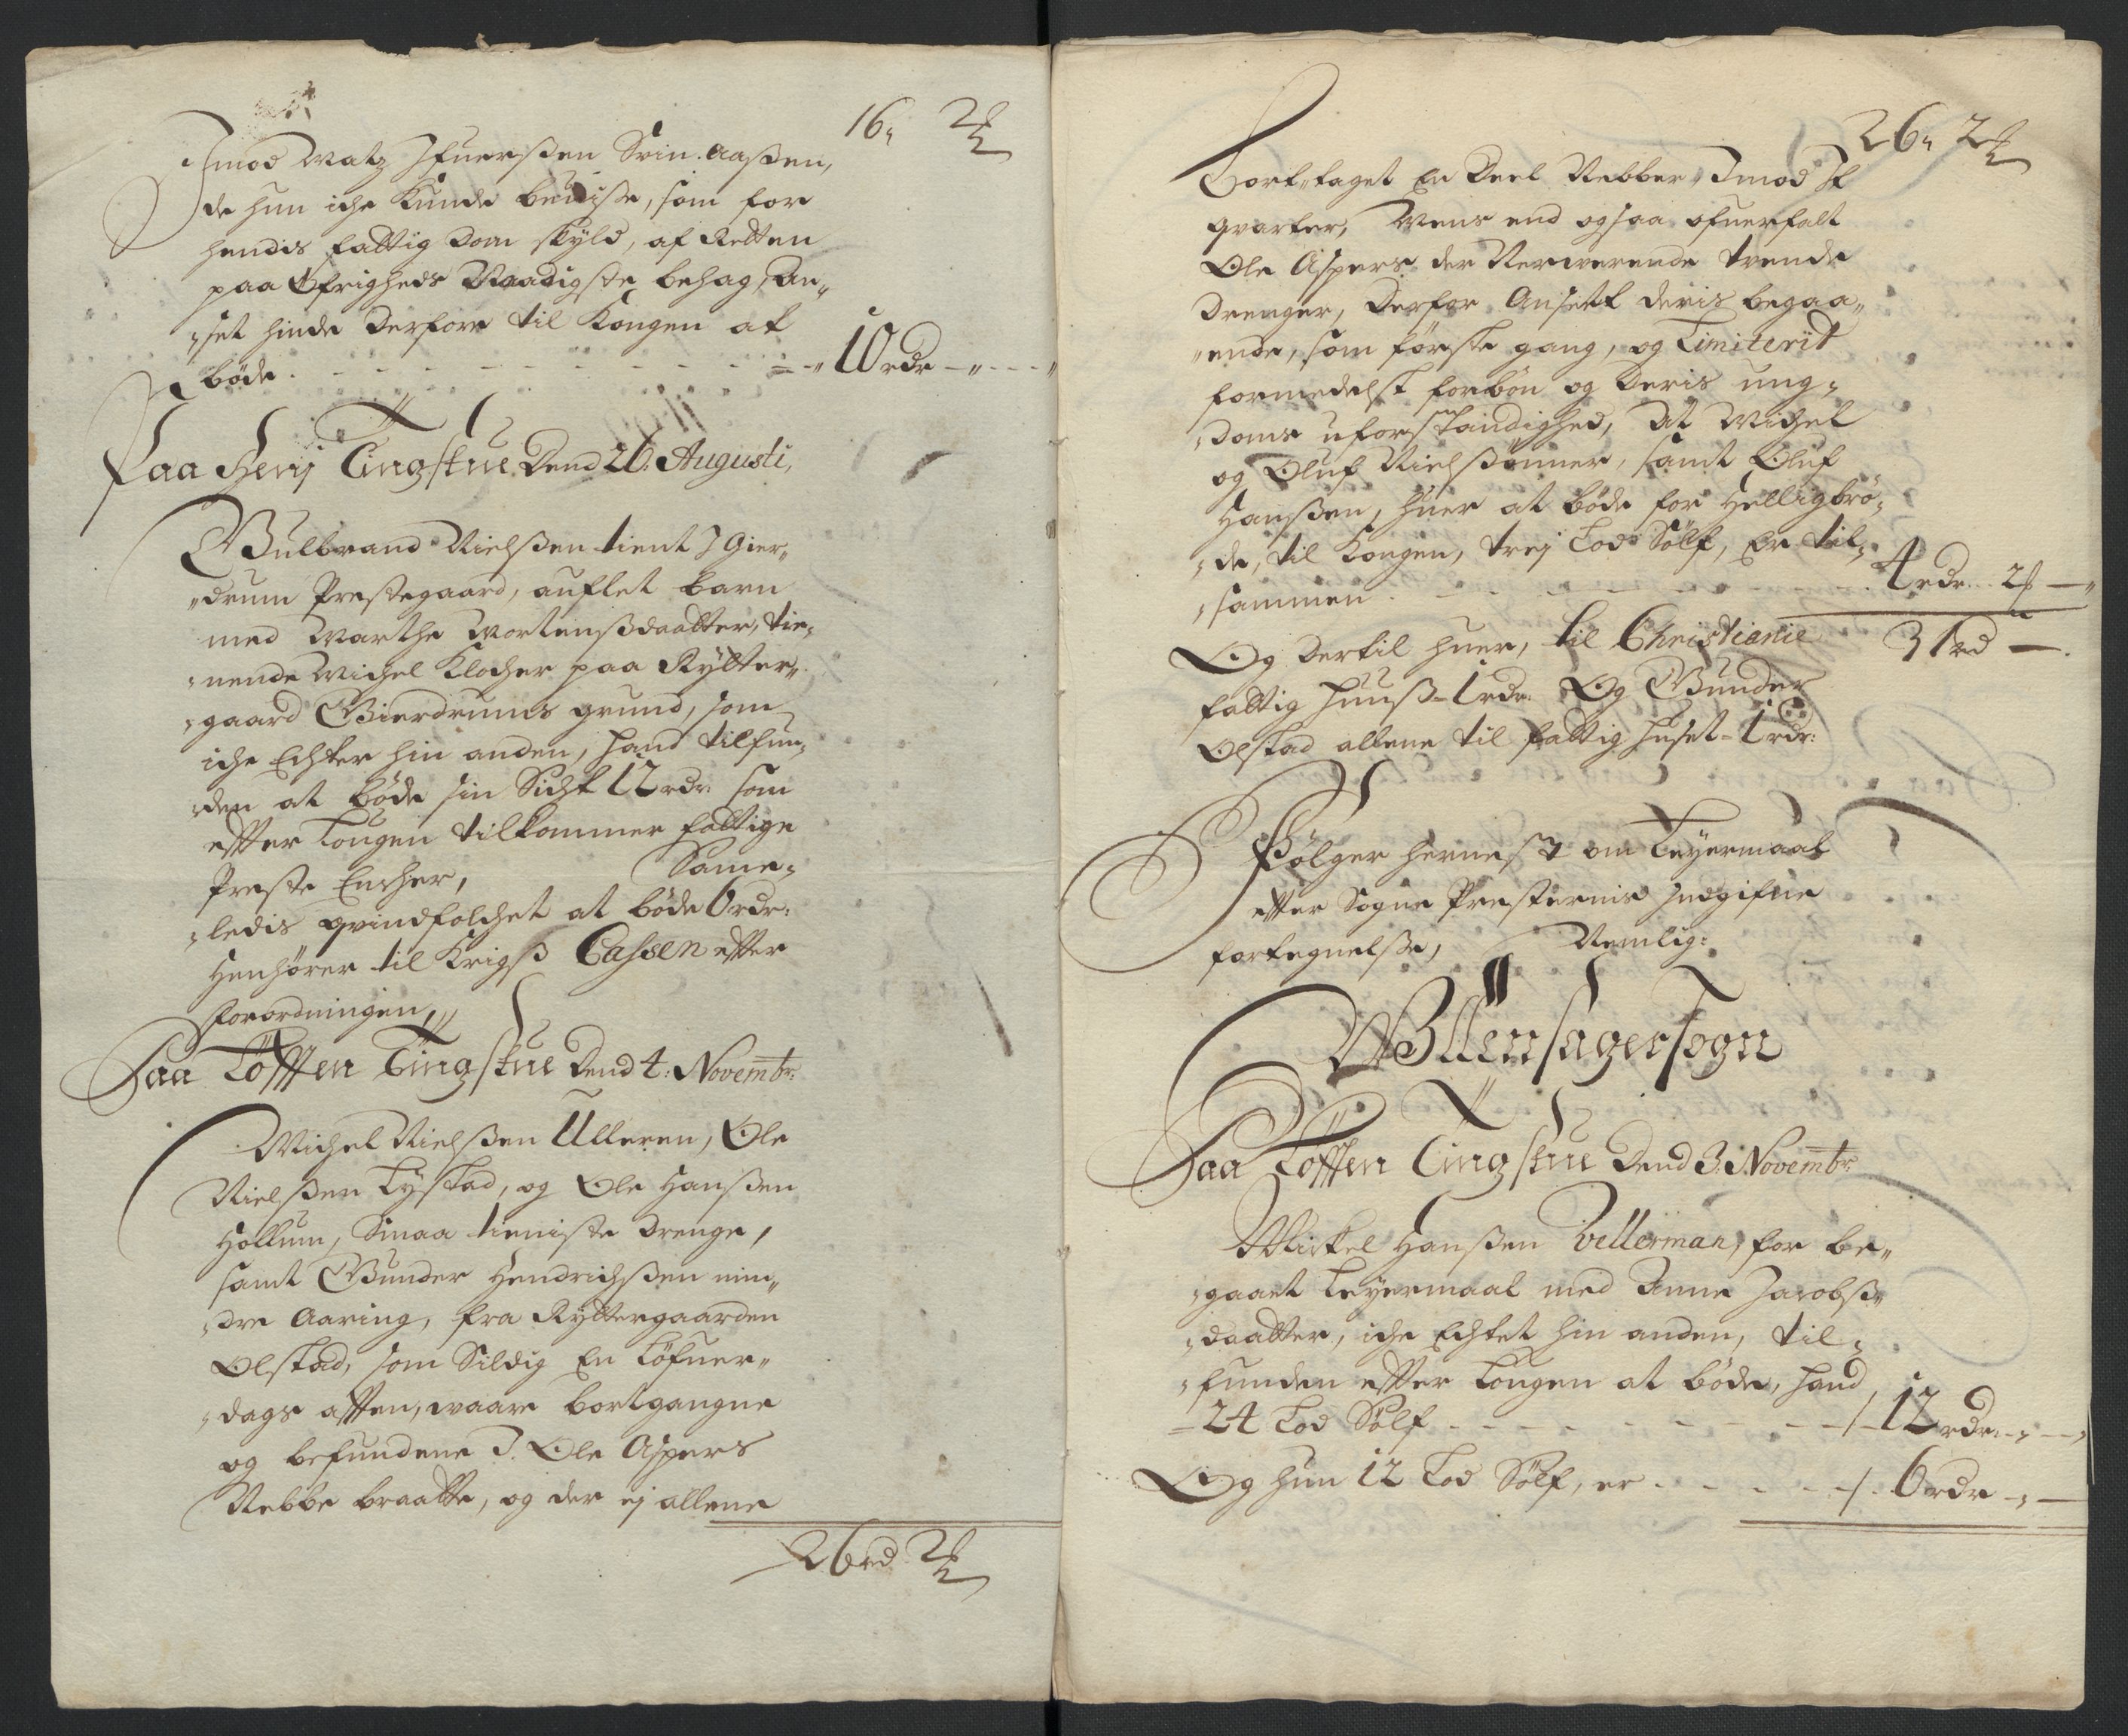 16 2½
Imod Matz Ifuerßen Svin Aaßen,
de hun iche Kunde beviise, som for
hendis fattig dom skyld, af Retten
paa Øfrigheds Naadigste behag, An„
„set hinde derfore til Kongen at
bøde - - - 10 rdr - „ -
Paa Herij Tingstue Dend 26. Augusti,
Gulbrand Nielßen tient I Gier„
„drum Prestegaard, auflet barn
med Marthe Mortensdaatter, tie„
„nende Michel Klocher paa Rytter„
„gaard Gierdrums grund, som
iche Echter hin anden, hand tilfun„
„den at bøde sin Sicht 12 rdr som
effter Lougen tilkommer fattige
Preste Encher, Same„
„ledis qvindfolchet at bøde 6 rdr:
Henhører til Krigß Cassen effter
forordningen,
Paa Løfften Tingstue Dend 4: Novembr:
Michel Nielßen Ulleren, Ole
Nielßen Lystad, og Ole Hanßen
Hollum, Smaa tieniste drenge,
samt Gunder Hendrichßen min„
„dre Aaring, fra Ryttergaarden
Olstad, som Sildig En Løfuer„
„dags afften, waare bortgangne
og befundene I. Ole Aspers
Nebbe braatte, og der ej allene
26 rd 2½
26 2½
Bort taget En Deel Nebber, Imod It
qvarter, Mens end ogsaa ofuerfalt
Ole Aspers der Nerwerende tvende
Drenger, Derfor Ansett deris begaa„
„ende, som første gang, og Limiterit
formedelst forbøn og deris ung„
„doms uforstandighed, At Michel
og Oluf Nielßønner, samt Oluf
Hanßen, huer at bøde for Helligbrø„
„de, til Kongen, trej Lod Sølf, Er til„
„sammen - - - 4 rdr 2 -
Og dertil huer, til Christianie 31 rd -
fattig huuß - 1 rdr: Og Gunder
Olstad allene til fattig huset - 1 rdr:
Følger hernest om Leyermaal
effter Sogne Presternis Indgifne
fortegnelse, Nemlig:
Ullensager sogn
Paa Løfften Tingstue Dend 3. Novembr:
Mickel Hanßen Vellerman, for be„
„gaaet Leyermaal med Anne Jacobß„
„daatter, iche Echtet hin anden, til„
„funden effter Lougen at bøde, hand
- 24 Lod Sølf - - - 12 rdr - „ -
Og hun 12 Lod Sølf, er - - - 6 rdr - „ -